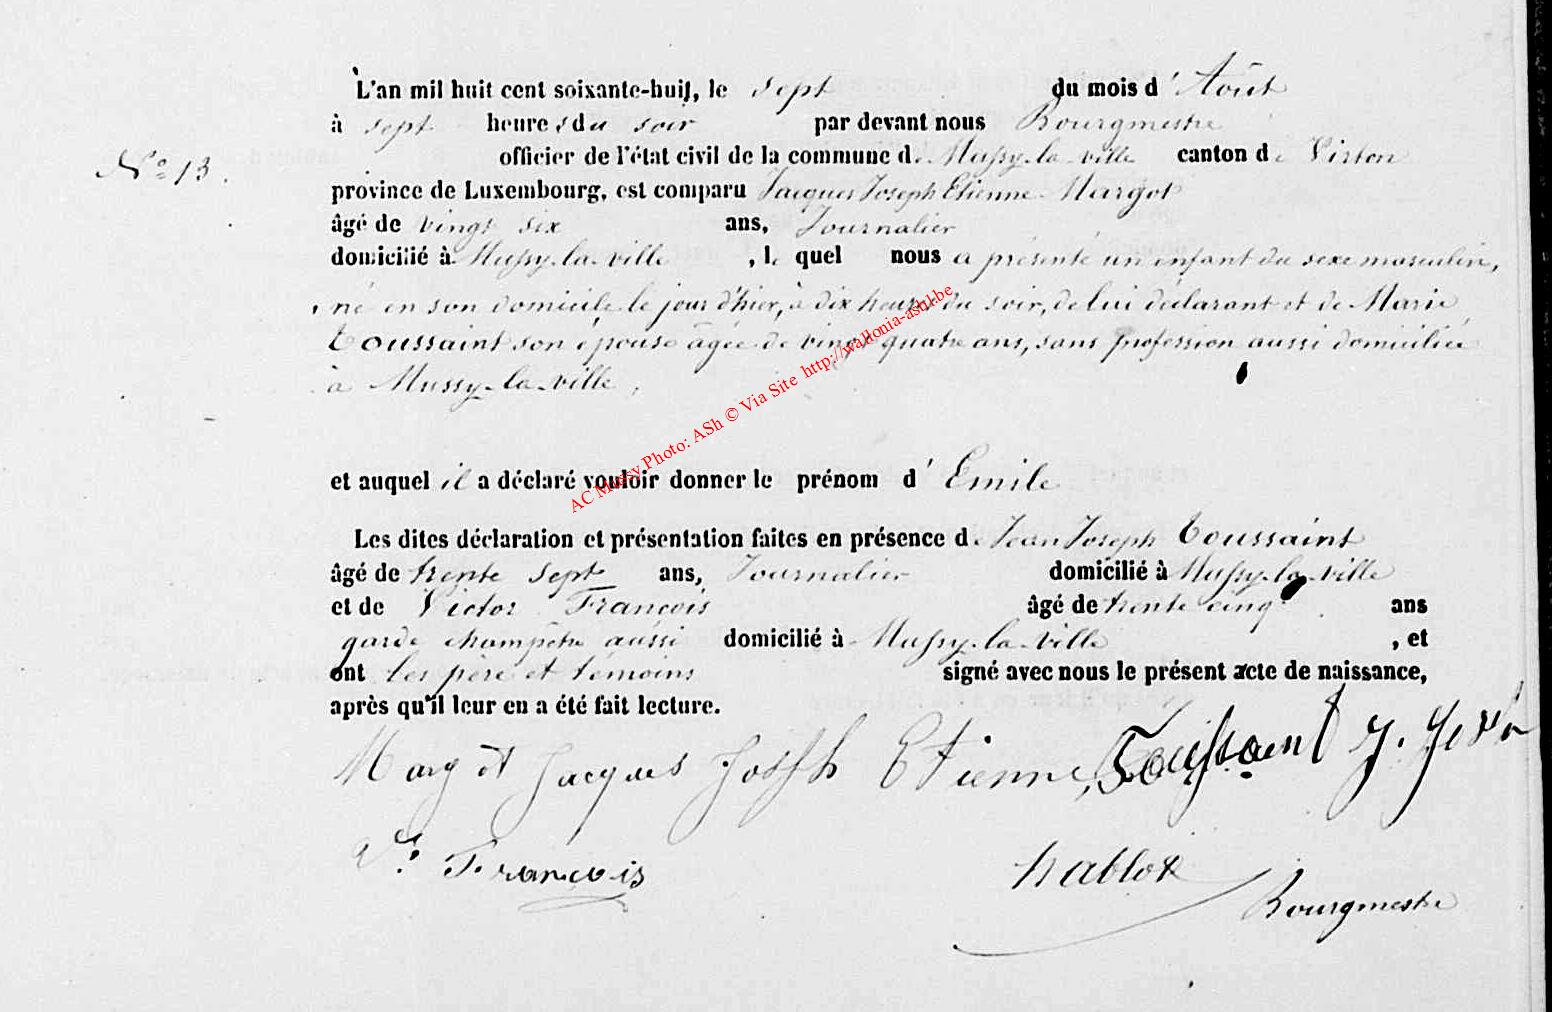 L'an mil huit cent soixante-huit, le sept du mois d'Août
à sept heures du soir par devant nous Bourgmestre
officier de l'état civil de la commune de Mussy-la-ville canton de Virton
N° 13.
province de Luxembourg, est comparu Jacques Joseph Etienne Margot
âgé de vingt six ans, Journalier
domicilié à Mussy-la-ville, le quel nous a présenté un enfant du sexe masculin,
né en son domicile le jour d'hier, à dix heures du soir, de lui déclarant et de Marie
Toussaint son épouse âgée de vingt quatre ans, sans profession aussi domiciliée
à Mussy-la-ville,
AC Mussy Photo: ASh © Via Site http://wallonia-ash.be
et auquel il a déclaré vouloir donner le prénom d'Emile
Les dites déclaration et présentation faites en présence de Jean Joseph Toussaint
âgé de trente sept ans, Journalier domicilié à Mussy-la-ville
et de Victor François âgé de trente cinq ans
garde champêtre aussi domicilié à Mussy-la-ville, et
ont les père et témoins signé avec nous le présent acte de naissance,
après qu'il leur en a été fait lecture.
Margot Jacques Joseph Etienne, Toussaint J. Josh
Vr. François
hablot
Bourgmestre